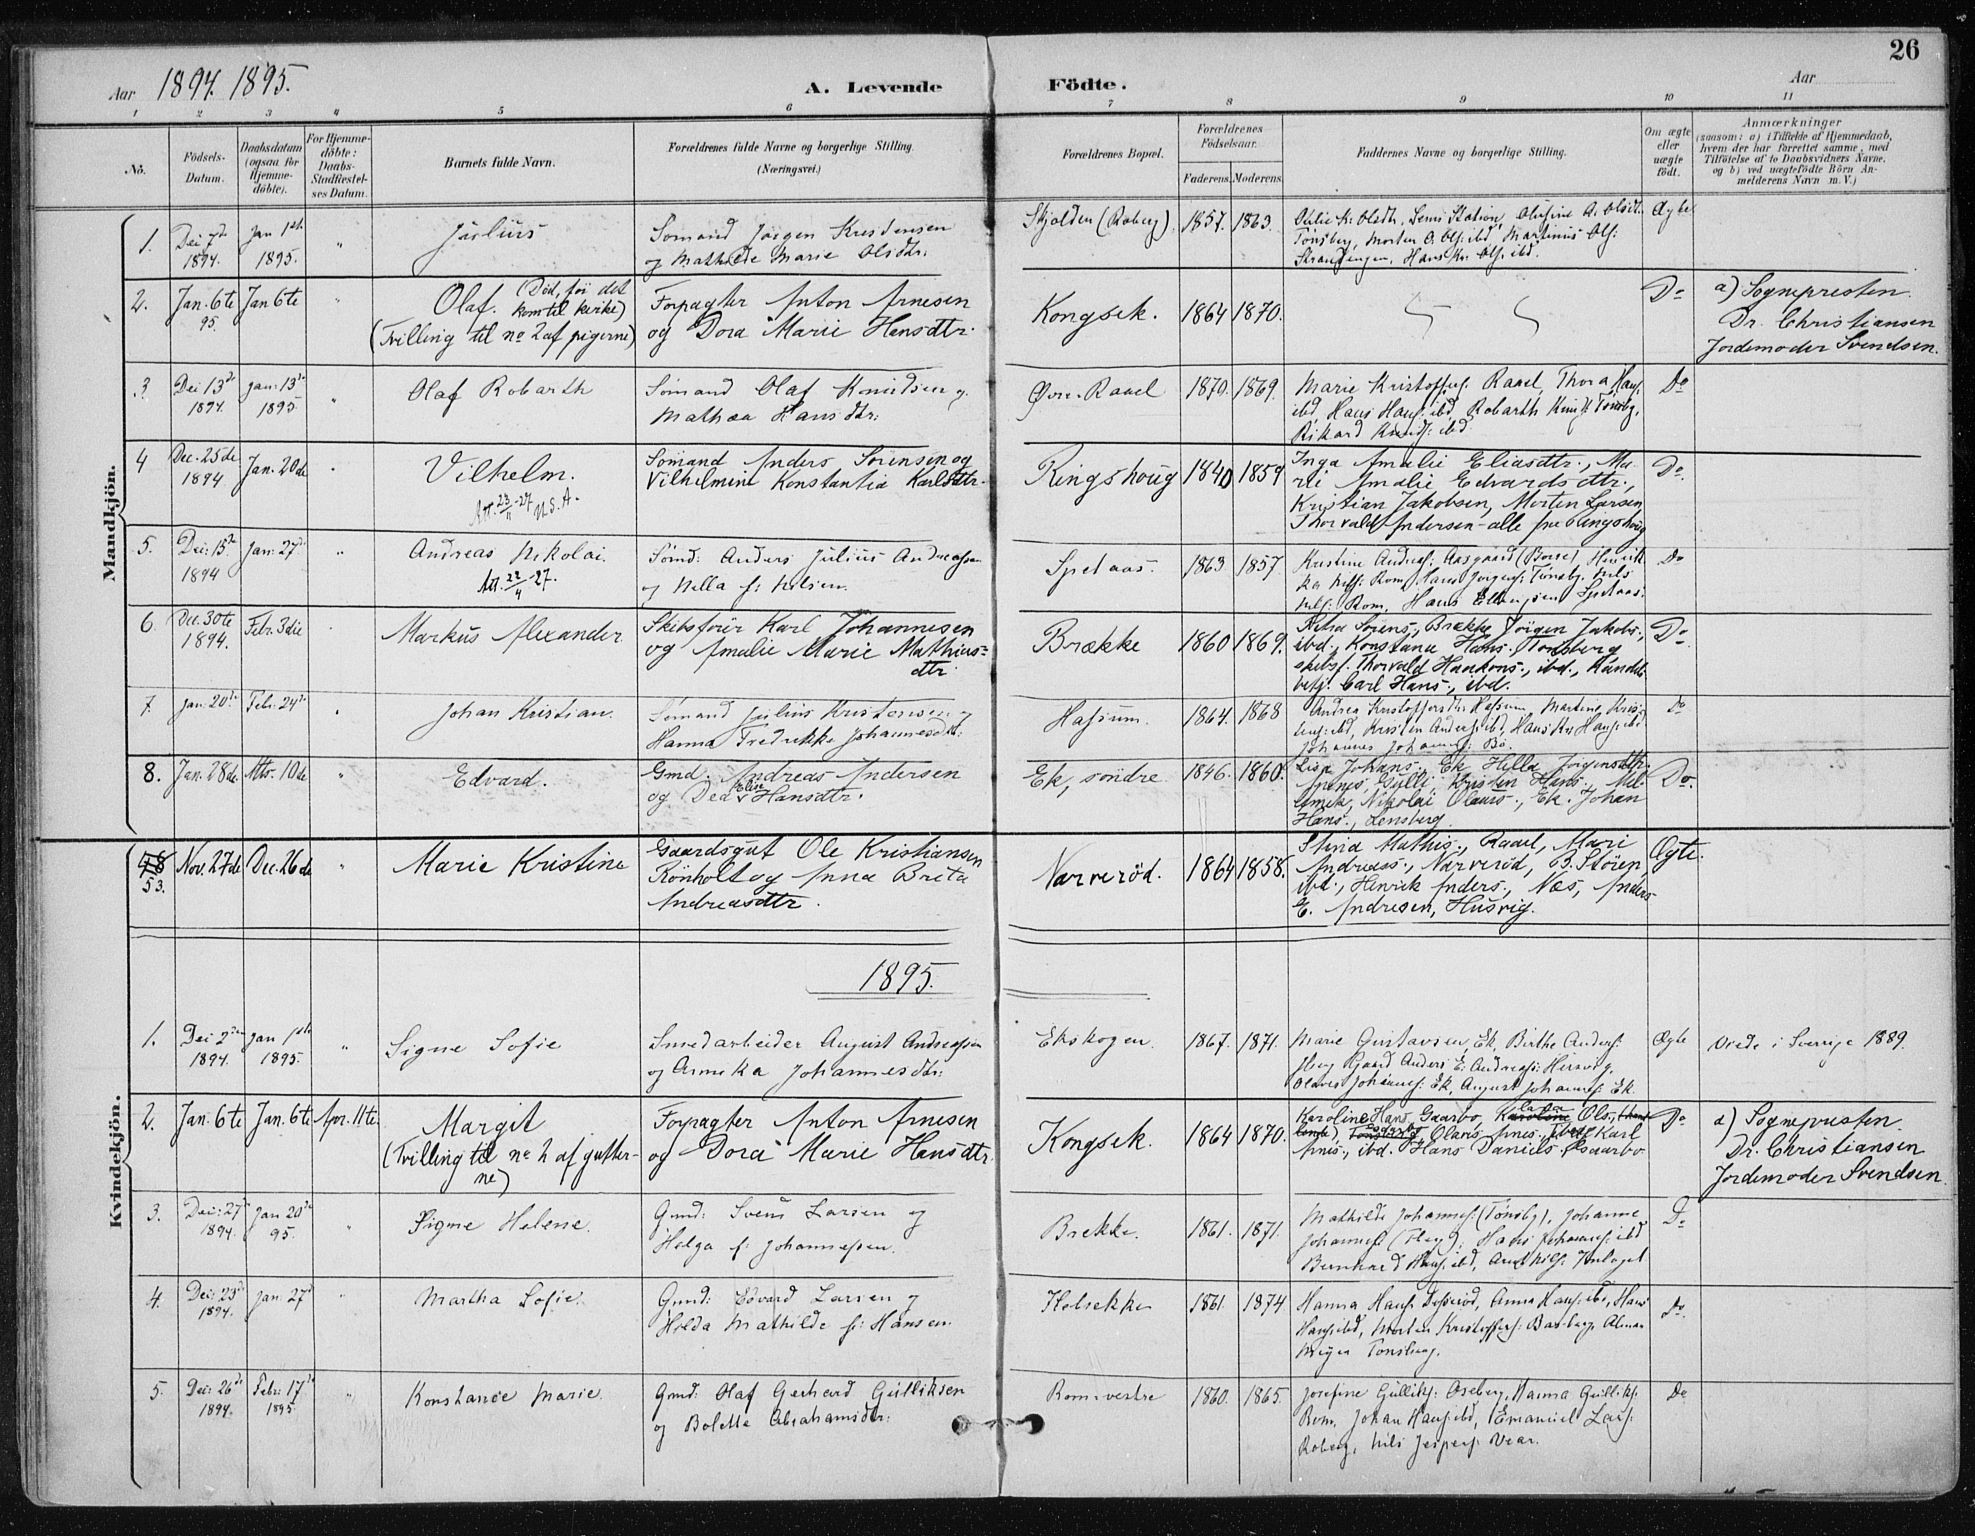 26
Aar 1894. 1895.
A. Levende Födte.
Aar
1 2 3 4 5 6 7 8 9 10 11
No.
Födsels-Datum.
Daabsdatum (ogsaa for Hjemme-döbte).
For Hjemme-döbte: Daabs-Stadfestel-ses Datum.
Barnets fulde Navn.
Forældrenes fulde Navne og borgerlige Stilling. (Næringsvei.)
Forældrenes Bopæl.
Forældrenes Födselsaar.
Faderens. Moderens.
Faddernes Navne og borgerlige Stilling.
Om ægte eller uægte födt.
Anmærkninger
(saasom: a) i Tilfælde af Hjemmedaab,
hvem der har forrettet samme, med
Tilföielse af to Daabsvidners Navne,
og b) ved uægtefödte Börn An-
melderens Navn m. V.)
Mandkjön.
1. Dec 7de 1894. Jan 1ste 1895. " Julius
Sömand Jörgen Kristensen
og Mathilde Marie Olsdtr:
Skjolden (Roberg). 1857. 1863.
Tönsberg, Morten O. Ols: ibd, Martinius Ols:
Hans Kr. Ols. ibd.
Ægte
2. Jan. 6te 95. Jan 6te " Olaf. (Död, för det kom til kirke)
(Tvilling til no 2 af pigerne)
Forpagter Anton Arnesen
og Dora Marie Hansdtr.
Kongsek. 1864 1870.
Do
a) Sognepresten.
Dr. Christiansen
Jordemoder Svendsen.
3. Dec 13de 1894. Jan: 13de 1895 " Olaf Robarth
Sömand Olaf Knudsen og
Mathea Hansdtr:
Övre Raael 1870. 1869.
Marie Kristoffs: Raael, Thora Hans:
ibd, Hans Hans: ibd, Robarth Knuds: Tönsbg,
Rikard Knuds: ibd.
Do
4 Dec. 25de 1894 Jan. 20de " Vilhelm.
Att. 23/11-27 U.S.A.
Sömand Anders Sörensen og
Vilhelmine Konstantia Karlsdtr.
Ringshoug 1840 1859
Inga Amalie Eliasdtr., Ma-
rie Amalie Edvardsdtr.,
Kristian Jakobsen, Morten Larsen
Thorvald Andersen - alle fra Ringshoug
Do.
5. Dec: 15de 1894 Jan: 27de " Andreas Nikolai.
Att. 22/4-27.
Sömd: Anders Julius Andreassen
og Nella f: Nilsen.
Spetaas. 1863 1857
Kristine Andreas: Aasgaard (Borre) Henrik-
ka Nils: Rom, Hans Jörgens: Tönsbg. Nils
Nils: Rom, Hans Ellingsen Spetaas.
Do
6. Dec. 30te 1894. Febr. 3die " Markus Alexander
Skibsförer Karl Johannesen
og Amalie Marie Mathias-
dtr.
Brække 1860 1869.
Petra Sörens., Brække, Jörgen Jakobs.,
ibd., Konstance Hans. Tönsberg
skibsf. Thorvald Haakons., ibd., Handels-
betj. Carl Hans., ibd.
Do
7. Jan: 20de Febr. 24de " Johan Kristian.
Sömand Julius Kristensen og
Hanna Fredrikke Johannesdtr:
Hassum. 1864. 1868
Andrea Kristoffersdtr: Hassum, Martine Kris-
tens: ibd, Kristen Anders: ibd, Hans Kr. Hans: ibd
Johannes Johannes: Bö.
Do
8. Jan. 28de Mts. 10de " Edvard.
Gmd. Andreas Andersen
og Dea Elise Hansdtr.
Ek, söndre 1846. 1860.
Lisa Johans., Ek Hella Jörgensdtr.
Arnes, Gylli, Kristen Hans., Mel-
Nikolai Olaus., Ek. Johan
Hans., Lensberg.
Do.
Kvindekjön.
53. Nov. 27de Dec. 26de " Marie Kristine
Gaardsgut Ole Kristiansen
Rönholt og Anna Breta
Andreasdtr.
Narveröd. 1864 1858.
Stina Mathis., Raael, Mari
Andreass., Narveröd, B. Stören,
ibd., Henrik Anders., Næs, Anders
E. Andresen, Husvig.
Ægte.
1895.
1. Dec 2den 1894. Jan 1ste 1895. " Signe Sofie
Smedarbeider August Andreassen
og Annika Johannesdtr:
Ekskogen. 1867. 1871.
Marie Gustavsen Ek, Birthe Anders:
Anders E. Andreass: Husvig,
Olaves Johannes: Ek, August Johannes: Ek.
Ægte
Viede i Sverige 1889.
2. Jan. 6te Jan. 6te Apr. 11te Margit
(Tvilling til no 2 af gutter-
ne)
Forpagter Anton Arnesen
og Dora Marie Hansdtr.
Kongsek. 1864 1870.
Karoline Hans. Gaarbo, Ols.,
Olaus Arnes., Karl
Arnes., ibd. Hans Daniels. Gaarbo
Do
a) Sognepresten.
Dr. Christiansen
Jordemoder Svendsen
3. Dec: 27de 1894. Jan 20de 95. " Signe Helene.
Gmd: Svend Larsen og
Helga f: Johannessen.
Brekke. 1861. 1871.
Mathilde Johannes: (Tönsbg), Johanne
Johannes: Hans Johannes: ibd
Bernhard Hans: ibd,
Do
4. Dec: 23de 1894. Jan: 27de Martha Sofie.
Gmd: Edvard Larsen og
Hilda Mathilde f: Hansen.
Holsekke 1861. 1874
Hanna Hans: Anna Hans: ibd, Hans
Hans: ibd, Morten Kristoffers:
Meyer Tönsberg.
Do.
5. Dec: 26de 1894. Febr: 17de 1895. " Konstance Marie.
Gmd: Olaf Gerhard Gulliksen
og Bolette Abrahamsdtr:
Rom: vestre 1860. 1865.
Josefine Gulliks: Oseberg, Hanna Gulliks:
Rom, Johan Hans: ibd, Emanuel Lars:
Roberg, Nils Jespers: Vear.
Do